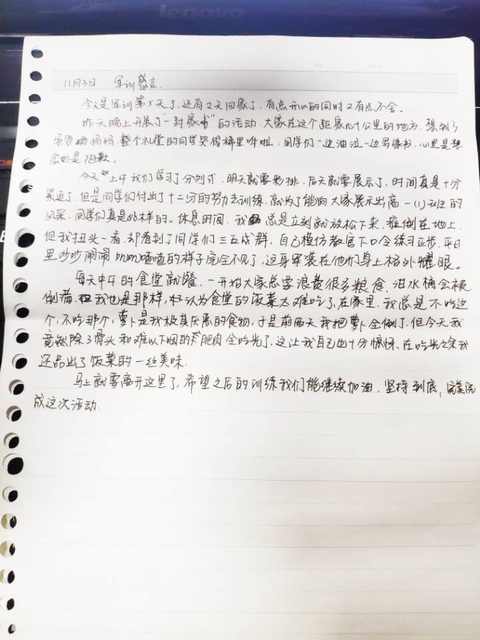 lenovo
11月3日 军训感言
今天是军训第5天了,还有2天回家了,有点开心的同时又有点不舍。
昨天晚上开展了"一封家书"的活动,大家在这个距家几十公里的地方,想到了
爸爸妈妈 整个礼堂的同学哭得稀里哗啦,同学们一边流泪一边写家书,心里是想
念也是抱歉。
今天上午我们学习了分列式,明天就要彩排,后天就要展示了,时间真是十分
紧迫了,但是同学们付出了十二分的努力去训练,就为了能向大家展示出高一(1)班的
风采,同学们真是好样的。休息时间,我总是立刻就放松下来,瘫倒在地上,
但我扭头一看,却看到了同学们三五成群,自己模仿教官下口令练习正步,平日
里吵吵闹闹 叽叽喳喳的样子完全不见了,这身军装在他们身上格外耀眼。
每天中午的食堂就餐,一开始大家总要浪费很多粮食,泔水桶会被
倒满,我也是那样,认为食堂的饭菜太难吃了,在家里,我总是不吃这
个,不吃那个,萝卜是我极其厌恶的食物,于是前两天我把萝卜全倒了,但今天我
竟然除了骨头和难以下咽的肥肉全吃光了,这让我自己也十分惊讶,在吃光之余我
还品出了饭菜的一丝美味。
马上就要离开这里了,希望之后的训练我们能继续加油,坚持到底,完美完
成这次活动.